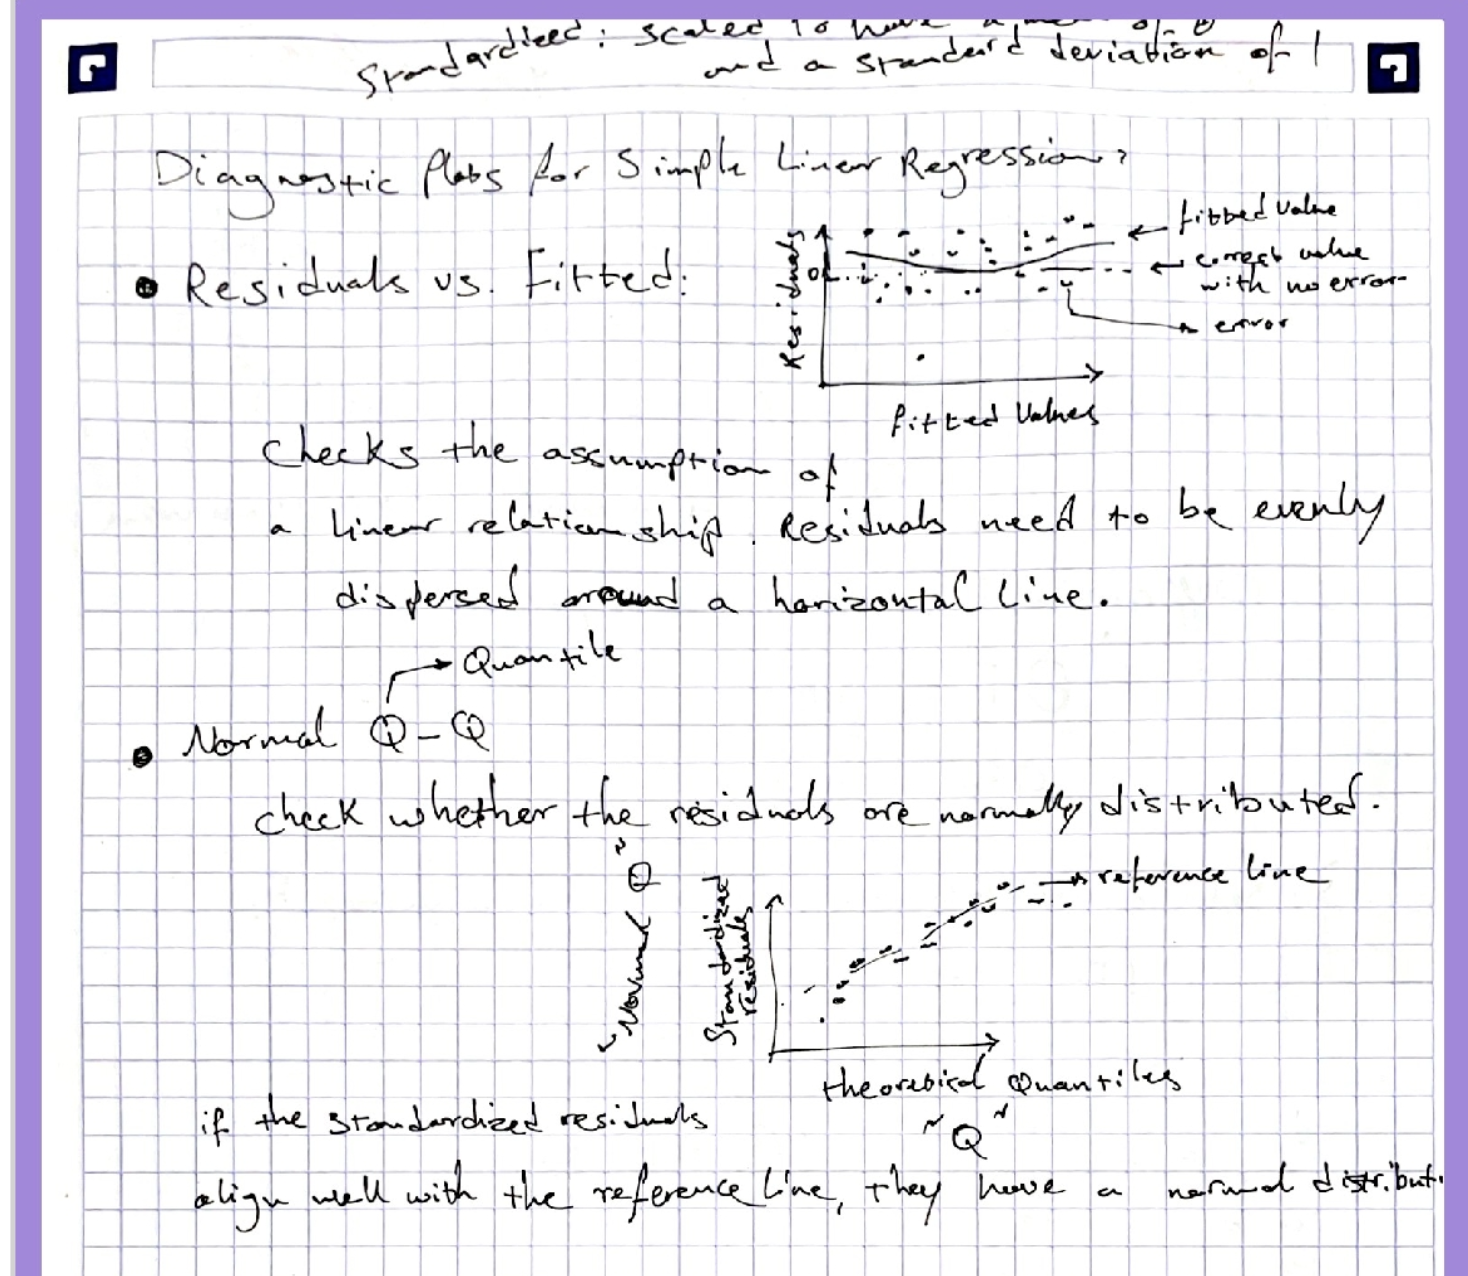 Standardized: scaled to have a mean of 0
and a standard deviation of 1
Diagnostic Plots for Simple Linear Regression:
• Residuals vs. Fitted:
Residuals
0
fitted value
correct value
with no error
error
fitted values
checks the assumption of
a linear relationship. Residuals need to be evenly
dispersed around a horizontal line.
Quantile
• Normal Q-Q
check whether the residuals are normally distributed.
"Normal Q"
Standardized
residuals
reference line
theoretical Quantiles
"Q"
if the standardized residuals
align well with the reference line, they have a normal distribut